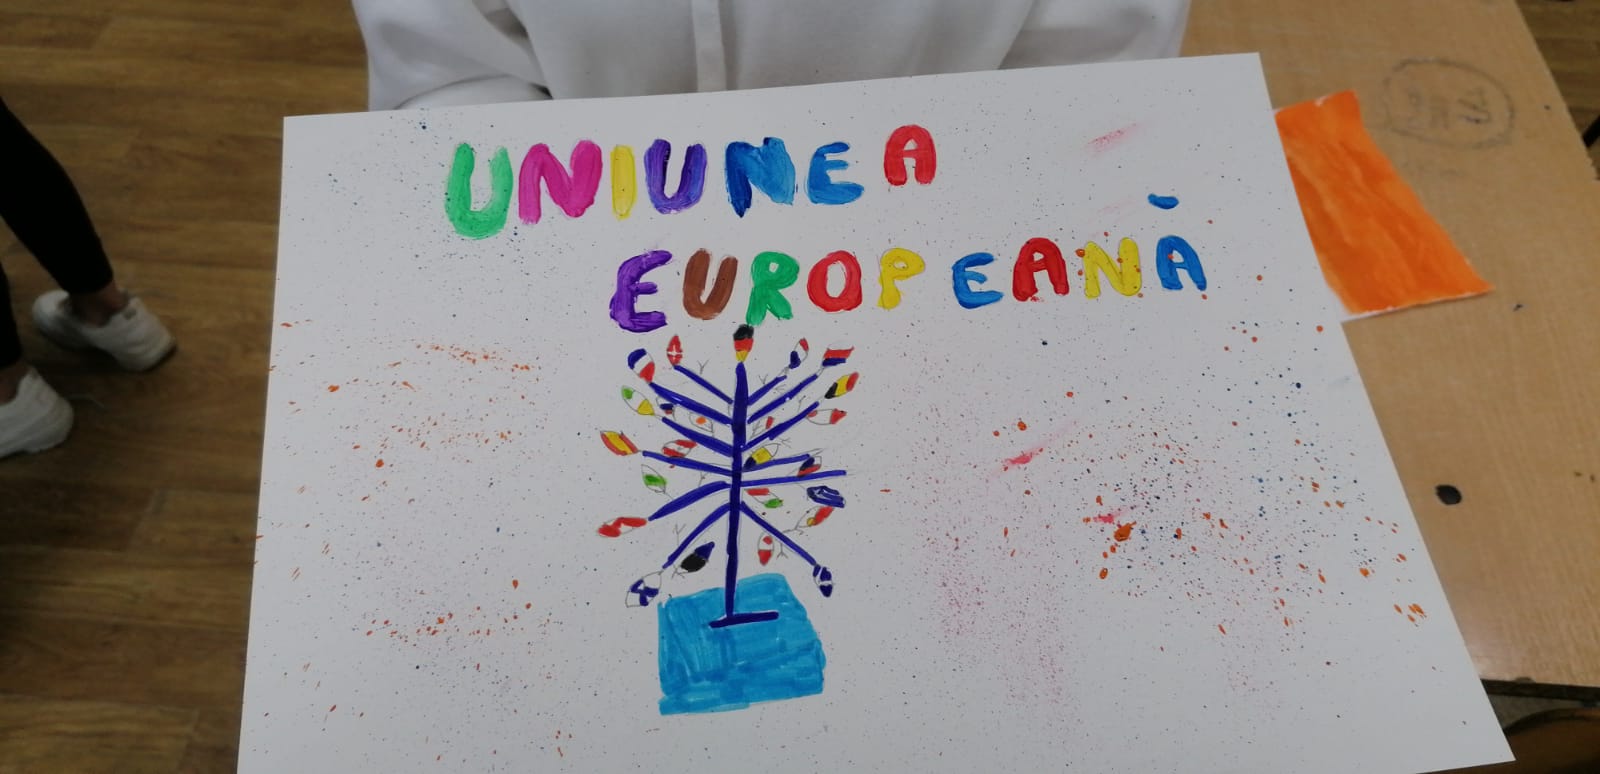 UNIUNEA
EUROPEANĂ